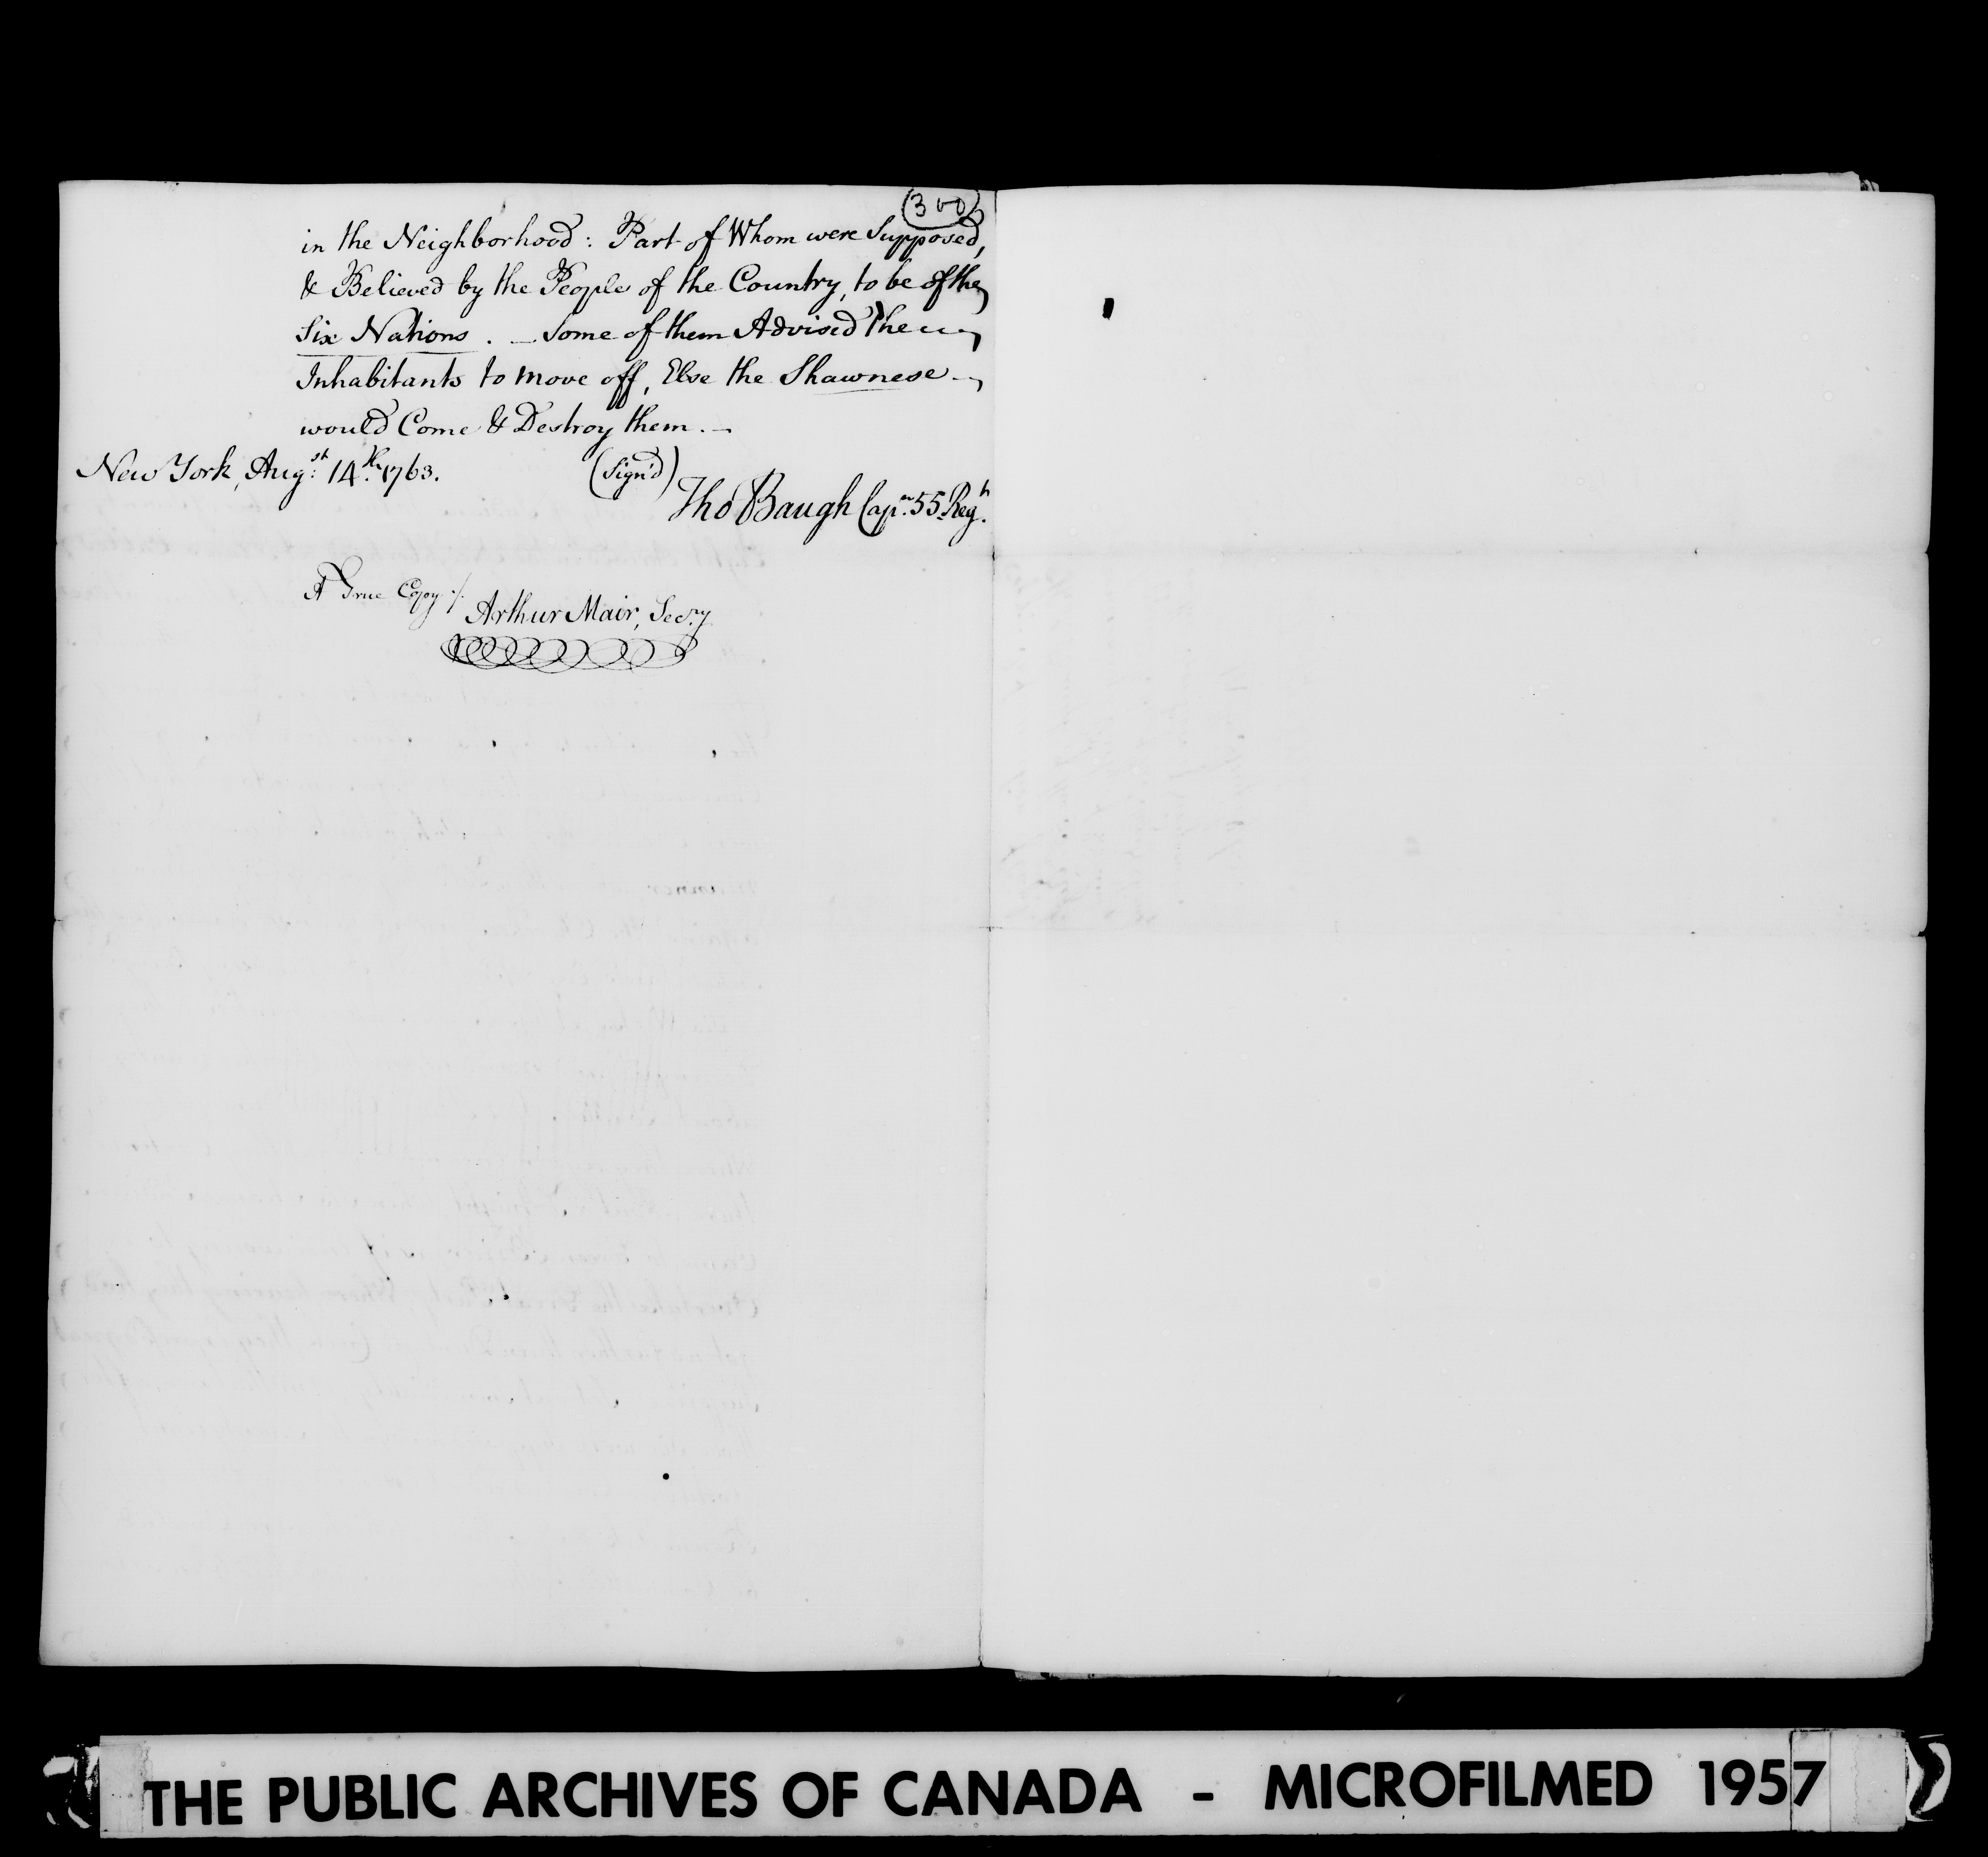 (300)
in the Neighborhood: Part of Whom were Supposed,
& Believed by the People of the Country, to be of the
Six Nations. — Some of them Advised The
Inhabitants to move off, Else the Shawnese
would Come & Destroy them. —
New York, Augst. 14th. 1763.
(Sign'd)
Tho Baugh Capn. 55 Regt.
A True Copy ./.
Arthur Mair, Secry
THE PUBLIC ARCHIVES OF CANADA - MICROFILMED 1957